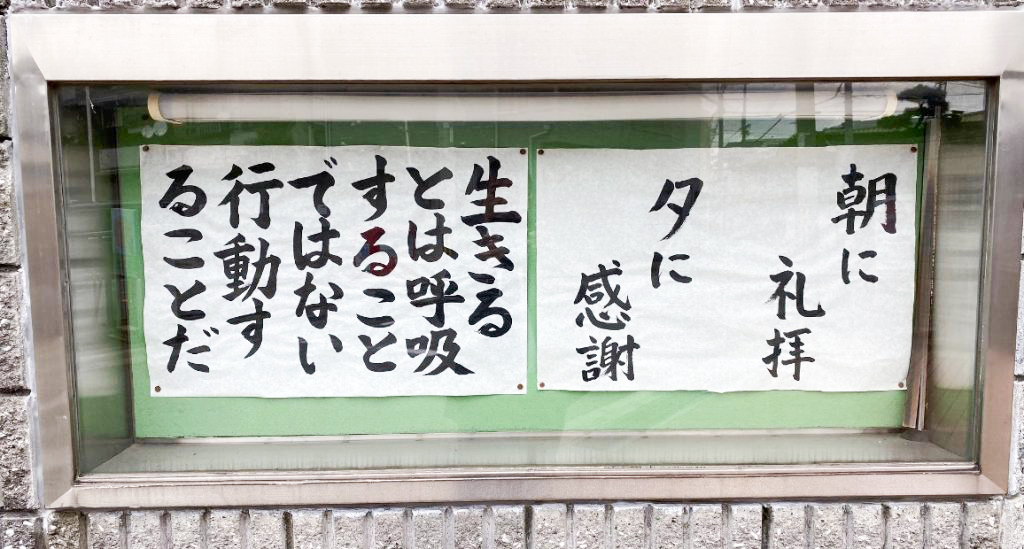 朝に
礼拝
夕に
感謝
生きる
とは呼吸
すること
ではない
行動す
ることだ